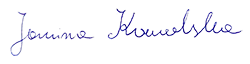 Janina Kowalska